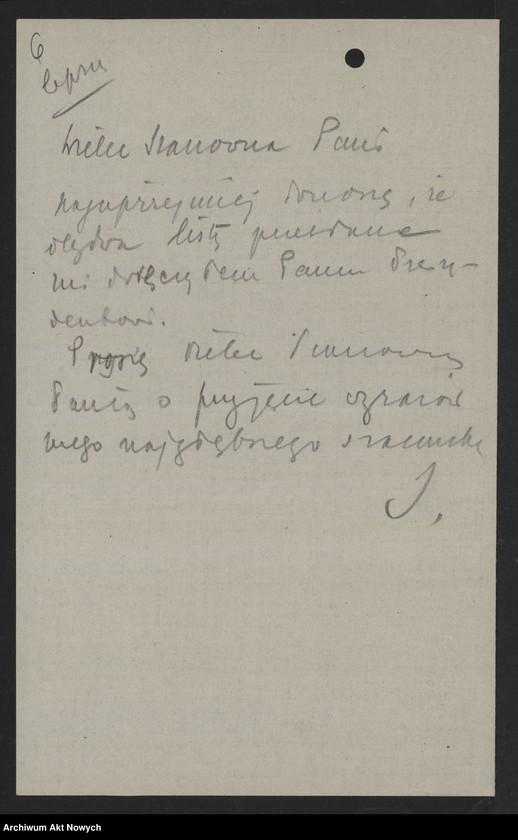 6
Wielce Szanowna Pani
najuprzejmiej donoszę, że
obydwa listy przesłane
mi doręczyłem Panu Prezy-
dentowi.
Proszę Wielce Szanowną
Panią o przyjęcie wyrazów
mego najgłębszego szacunku
Archiwum Akt Nowych